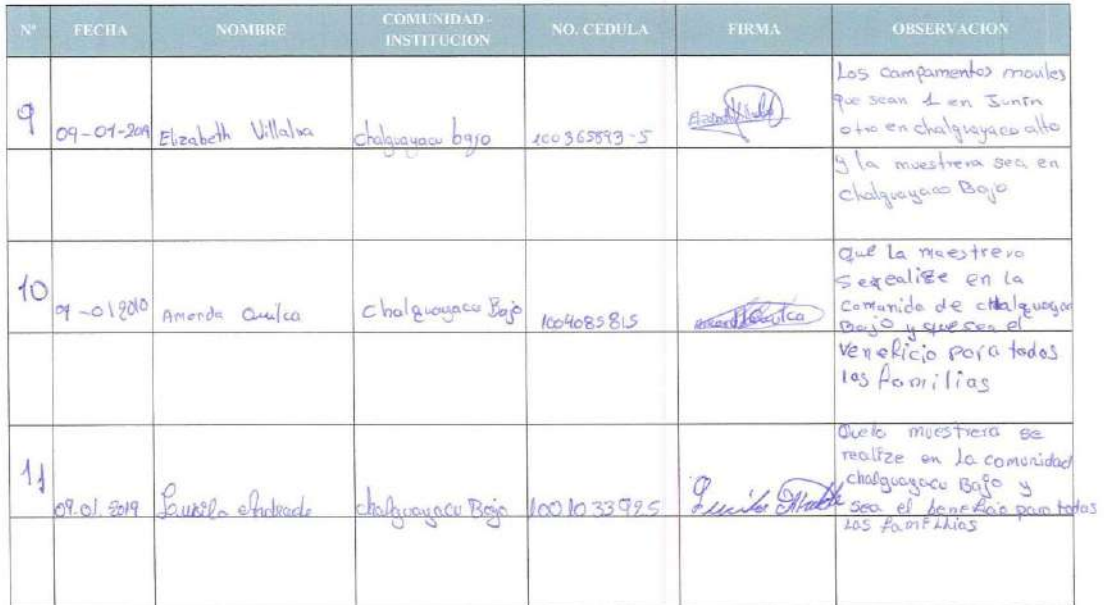 N° FECHA NOMBRE COMUNIDAD - INSTITUCION NO. CEDULA FIRMA OBSERVACION
9 09-01-2019 Elizabeth Villalva Chalguayacu bajo 100365893-5
Los campamentos moviles
que sean 1 en Junin
otro en chalguayaco alto
y la muestrera sea en
chalguayaco Bajo
10 09-01 2010 Amanda Quilca Chalguayacu Bajo 1004085815
que la maestrera
se realize en la
Comunida de chalguayac
Bajo y que sea el
veneficio para todas
las familias
11 09.01.2019 Andrade chalguayacu Bajo 1001033925
Que la muestrera se
realize en la comunidad
chalguayacu Bajo y
sea el beneficio para todas
las familias